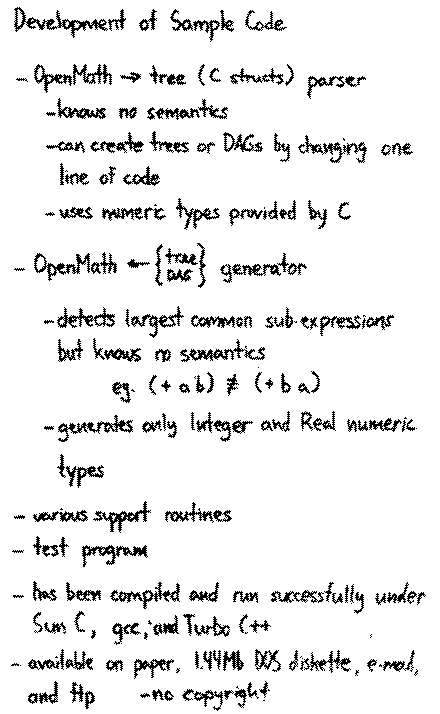 Development of Sample Code
- OpenMath → tree (C structs) parser
- knows no semantics
- can create trees or DAGs by changing one
line of code
- uses numeric types provided by C
- OpenMath ← {tree DAG} generator
- detects largest common sub-expressions
but knows no semantics
eg. (+ a b) ≠ (+ b a)
- generates only Integer and Real numeric
types
- various support routines
- test program
- has been compiled and run successfully under
Sun C, gcc, and Turbo C++
- available on paper, 1.44Mb DOS diskette, e-mail,
and ftp - no copyright